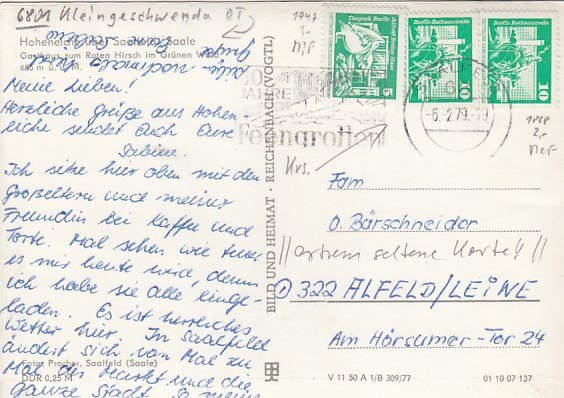 6801 Kleingeschwenda
Hoheneiche über Saalfeld/Saale
Gasthaus zum Roten Hirsch im Grünen Wald
Meine Lieben!
Herzliche Grüße aus Hohen-
eiche sendet Euch Eure
Sabine.
Ich sitze hier oben mit den
Großeltern und meiner
Freundin bei Kaffee und
Torte. Mal sehen wie teuer
es mir heute wird, denn
ich habe sie alle einge-
laden. Es ist herrliches
Wetter hier. In Saalfeld
ändert sich von Mal zu
Mal der Markt und die
ganze Stadt. So
Foto: Procher, Saalfeld (Saale)
DDR 0,25 M
BILD UND HEIMAT · REICHENBACH (VOGTL)
1947
1.-
Tierpark Berlin
5
Berlin, Rathausstraße
10
Berlin, Rathausstraße
10
JAHRE
Feengrotten
-6.-2.79.-19
2,-
Krs.
Fam.
O. Bärschneider
//extrem seltene Karte!!//
322 ALFELD/LEINE
Am Hörsumer-Tor 24
V 11 50 A 1/B 309/77
01 10 07 137